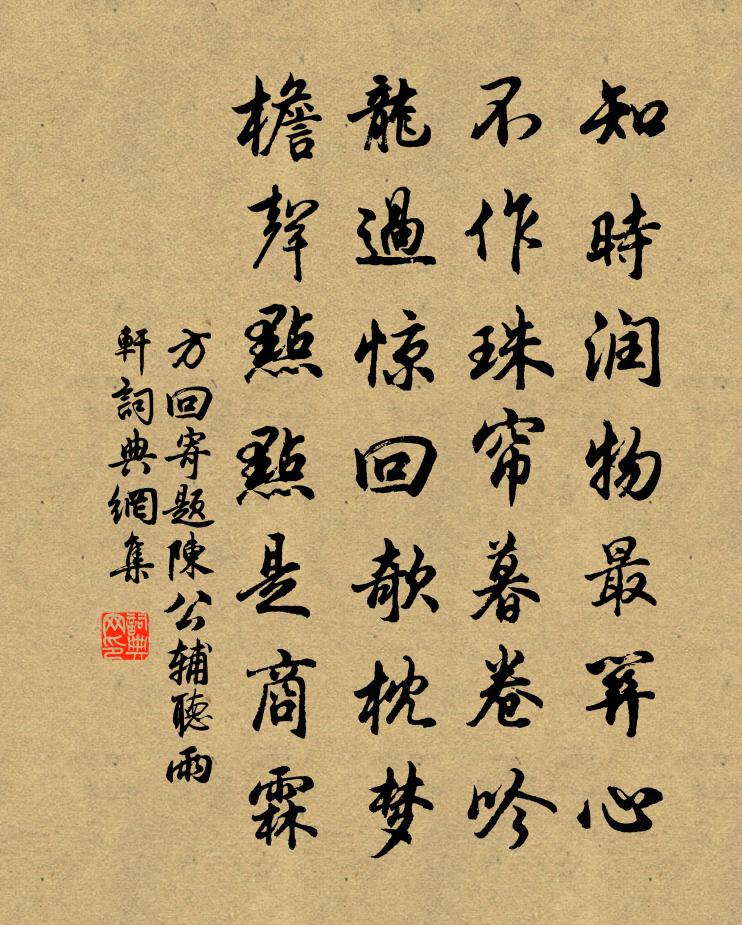 知時润物最關心
不作珠帘暮卷吟
龍過惊回欹枕梦
檐聲點點是商霖
方回寄题陳公辅聽雨
軒詞典網集
詞典网印